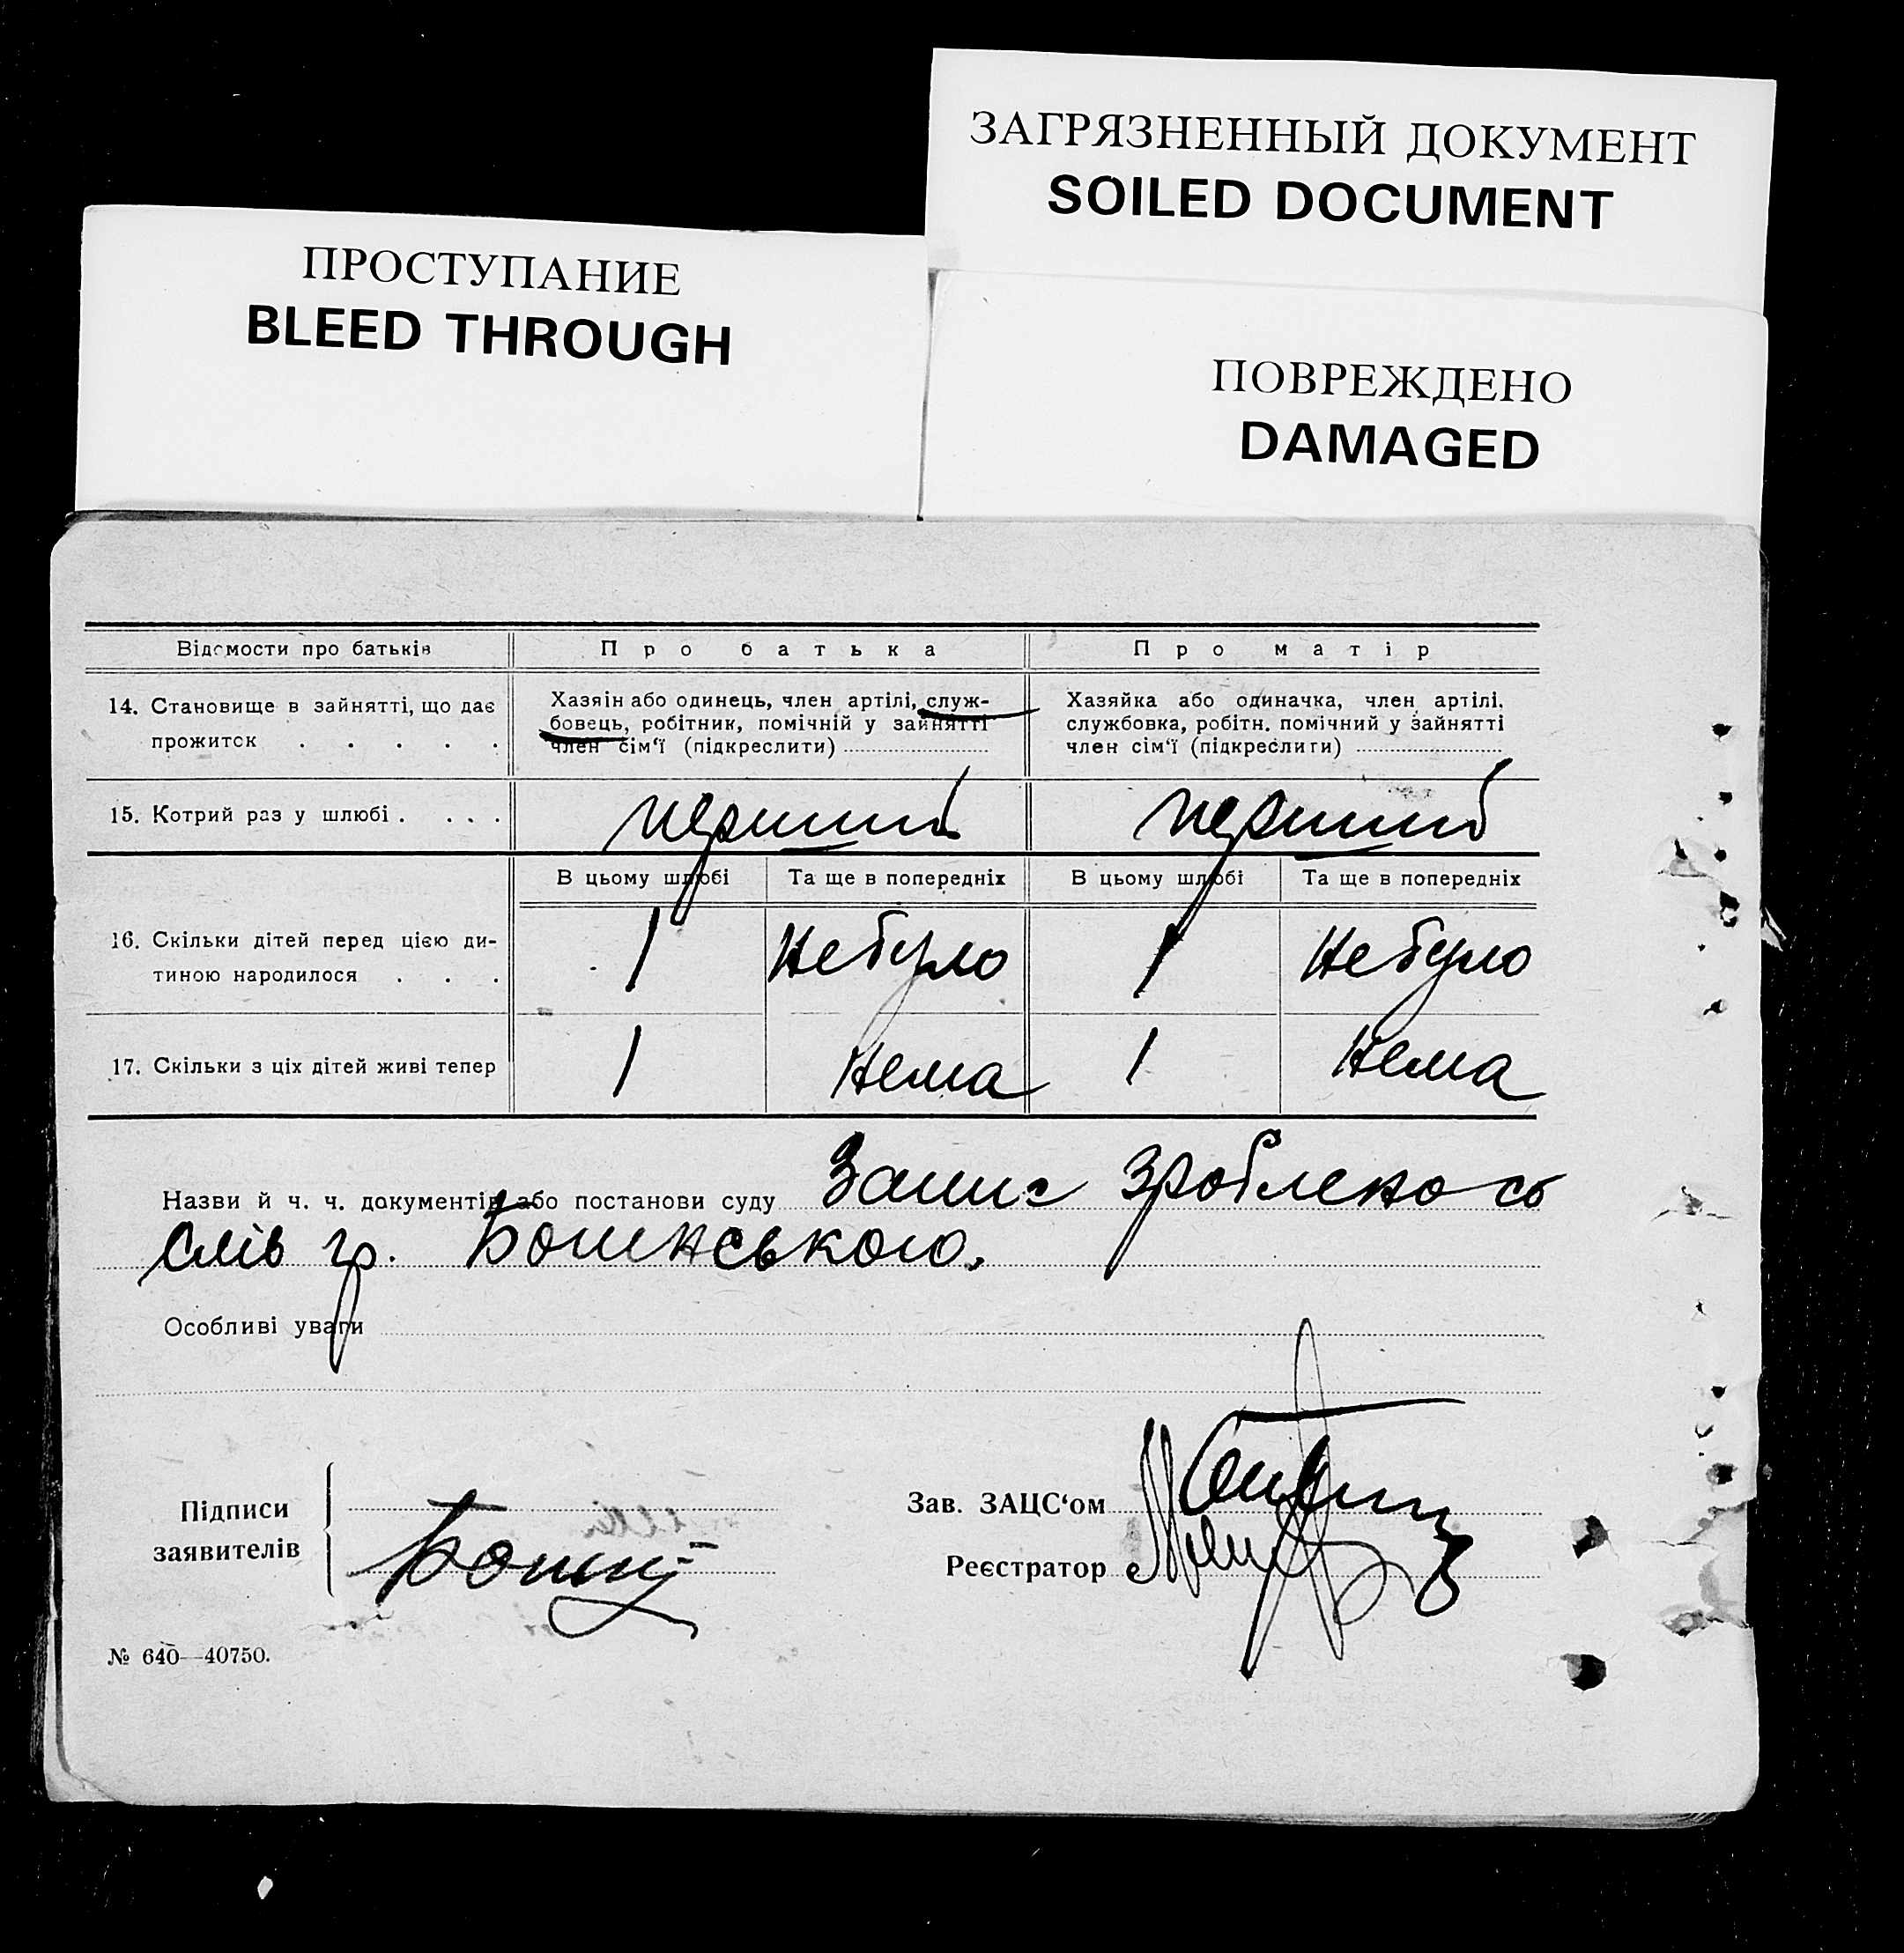 ЗАГРЯЗНЕННЫЙ ДОКУМЕНТ
SOILED DOCUMENT
ПРОСТУПАНИЕ
BLEED THROUGH
ПОВРЕЖДЕНО
DAMAGED
Відомости про батьків
Про батька
Про матір
14. Становище в зайнятті, що дає
прожиток . . . . .
Хазяін або одинець, член артілі, служ-
бовець, робітник, помічній у зайнятті
член сім'ї (підкреслити)
Хазяйка або одиначка, член артілі,
службовка, робітн. помічний у зайнятті
член сім'ї (підкреслити)
15. Котрий раз у шлюбі . . . .
перший
перший
В цьому шлюбі
Та ще в попередніх
В цьому шлюбі
Та ще в попередніх
16. Скільки дітей перед цією ди-
тиною народилося . . .
1
Небуло
1
Небуло
17. Скільки з ціх дітей живі тепер
1
Нема
1
Нема
Назви й ч. ч. документів або постанови суду Запис зроблено со
слів гр.
Особливі уваги
Підписи
заявителів
Зав. ЗАЦС'ом
Реєстратор
№ 640—40750.